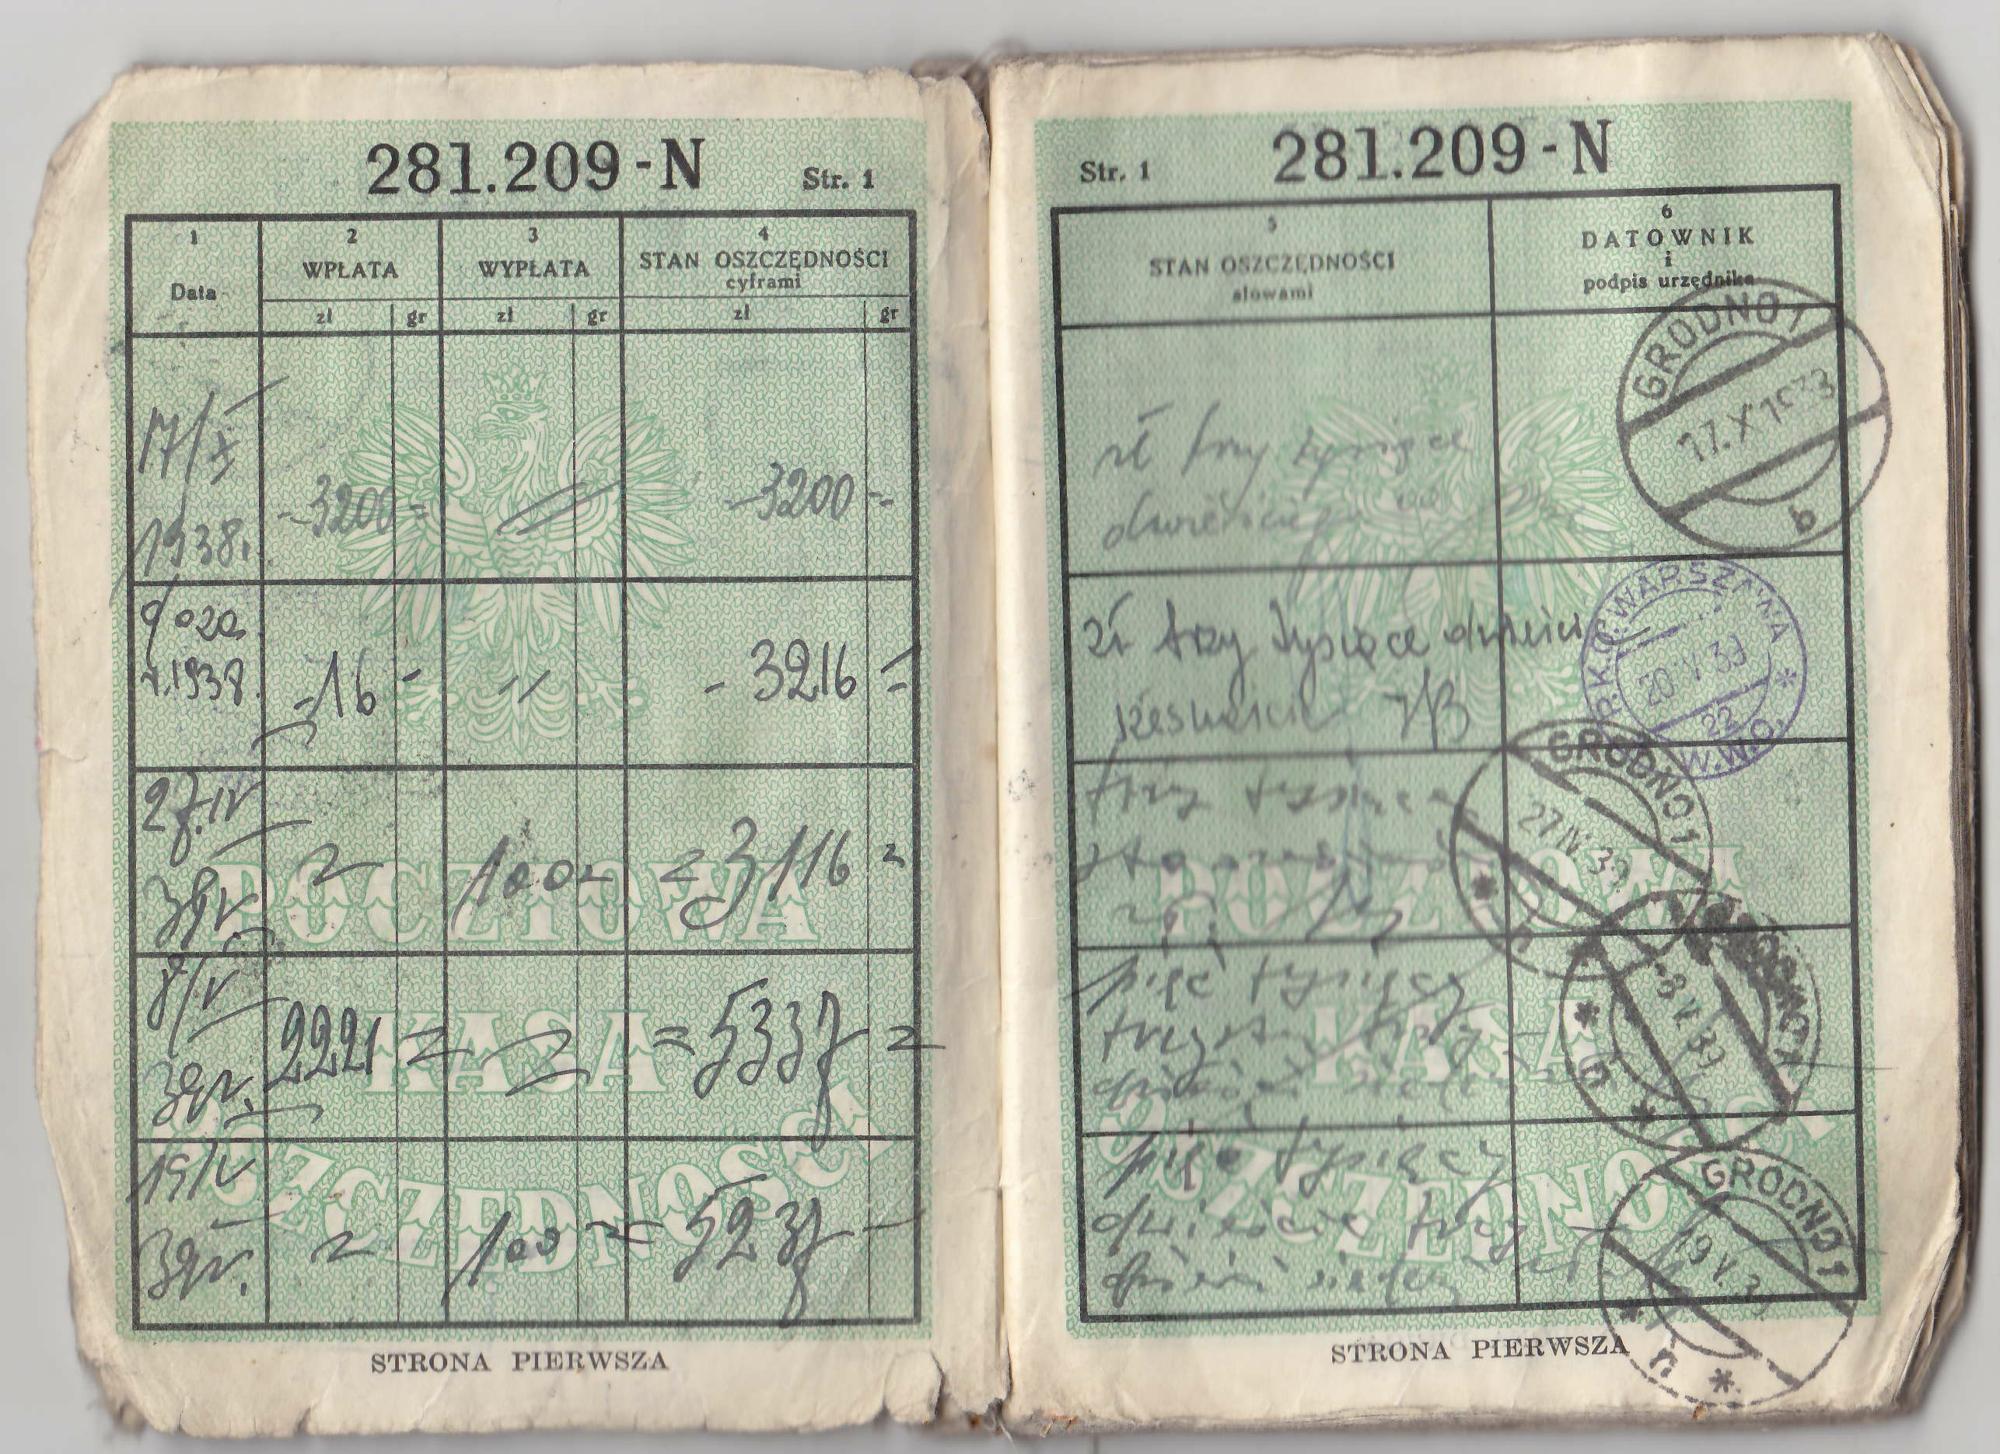 281.209-N Str. 1
1 2 3 4
Data WPŁATA WYPŁATA STAN OSZCZĘDNOŚCI
cyframi
zł gr zł gr zł gr
17/X
1938. -3200= -3200-
%o za
r. 1938. -16- - 3216 =
27.IV
39r. 100 = 3116 =
8/V
39r. 2221 = = 5337 =
19/V
39r. 100 = 5237 -
POCZTOWA
KASA
OSZCZĘDNOŚCI
STRONA PIERWSZA
Str. 1 281.209-N
5 6
STAN OSZCZĘDNOŚCI DATOWNIK
słowami i
podpis urzędnika
zł trzy tysiące
dwieście
GRODNO 1
17.X 1938
b
zł trzy tysiące dwieście
szesnaście
P.K.O. WARSZAWA *
20 V 39
22
W.W.O.
trzy tysiące
sto
GRODNO 1
27 IV 39
*
pięć tysięcy
trzysta trzy
dzieści siedem
-8 V 39
* *
pięć tysięcy
dwieście trzy
dzieści siedem
GRODNO 1
19 V 39
* n *
POCZTOWA
KASA
OSZCZĘDNOŚCI
STRONA PIERWSZA